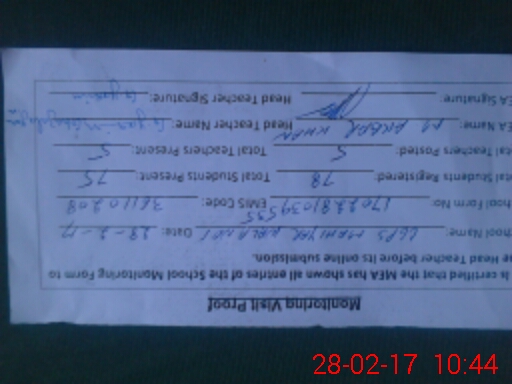 Monitoring Visit Proof
is certified that the MEA has shown all entries of the School Monitoring Form to
Head Teacher before its online submission.
Name: Date: 28-2-17
Form No: EMIS Code: 36110208
Students Registered: 78 Total Students Present: 75
Teachers Posted: 5 Total Teachers Present: 5
EA Name: AKBAR KHAN Head Teacher Name:
EA Signature: Head Teacher Signature:
28-02-17 10:44